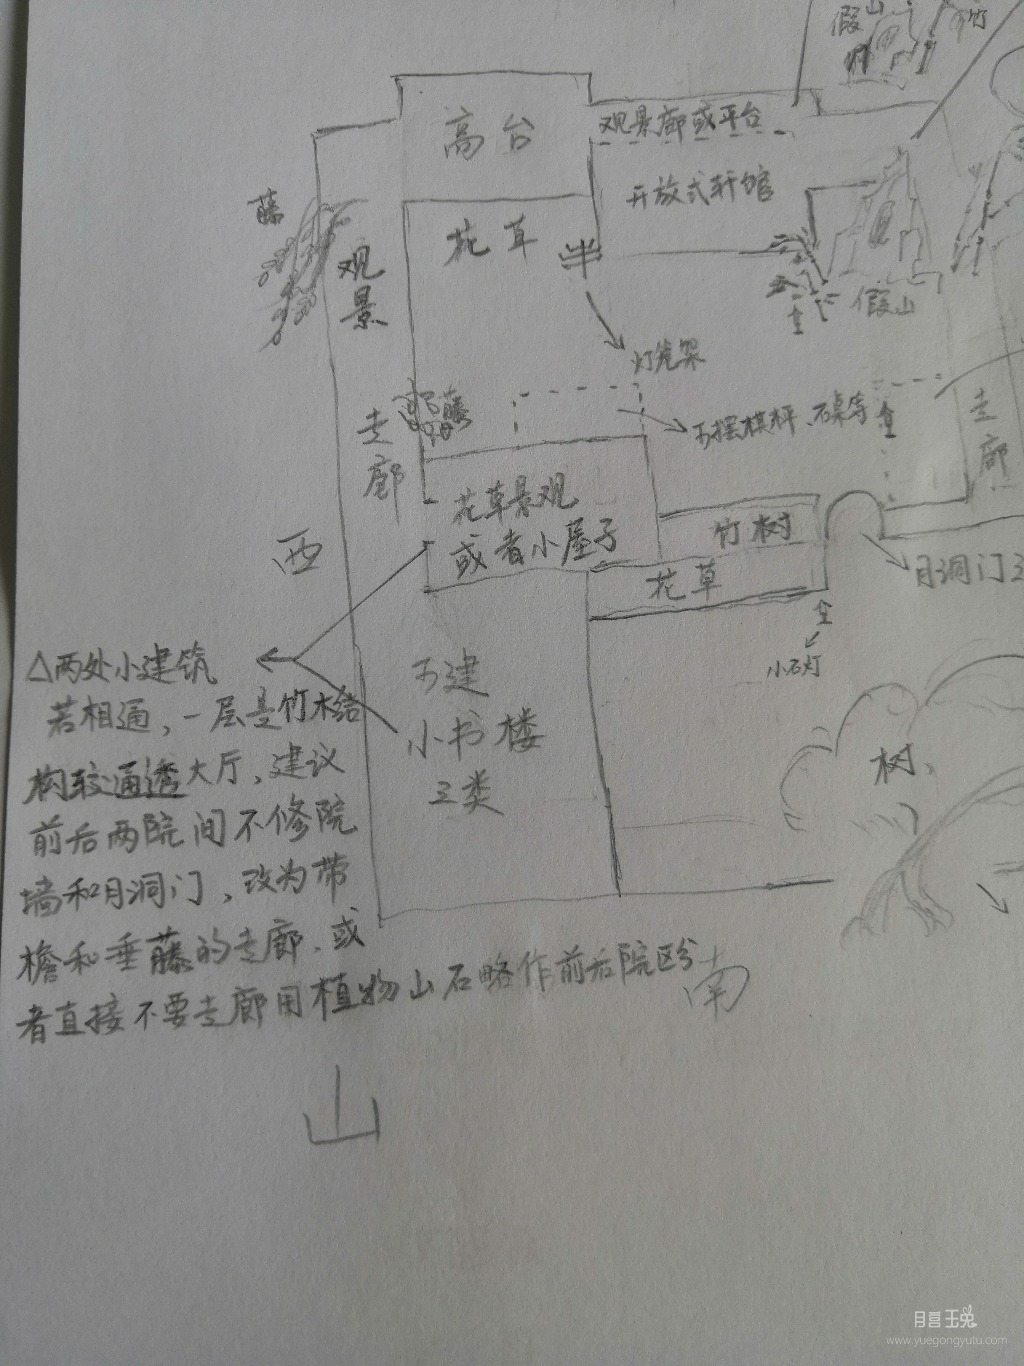 假山
竹
高台
观景廊或平台
开放式轩馆
藤
花草
观景
假山
灯笼架
藤
走廊
可摆棋枰、石桌等
走廊
花草景观
或者小屋子
竹树
西
花草
月洞门
小石灯
△两处小建筑
若相通,一层是竹木结
构较通透大厅,建议
前后两院间不修院
墙和月洞门,改为带
檐和垂藤的走廊,或
者直接不要走廊用植物山石略作前后院区分
可建
小书楼
之类
树
南
山
月宫玉兔
www.yuegongyutu.com